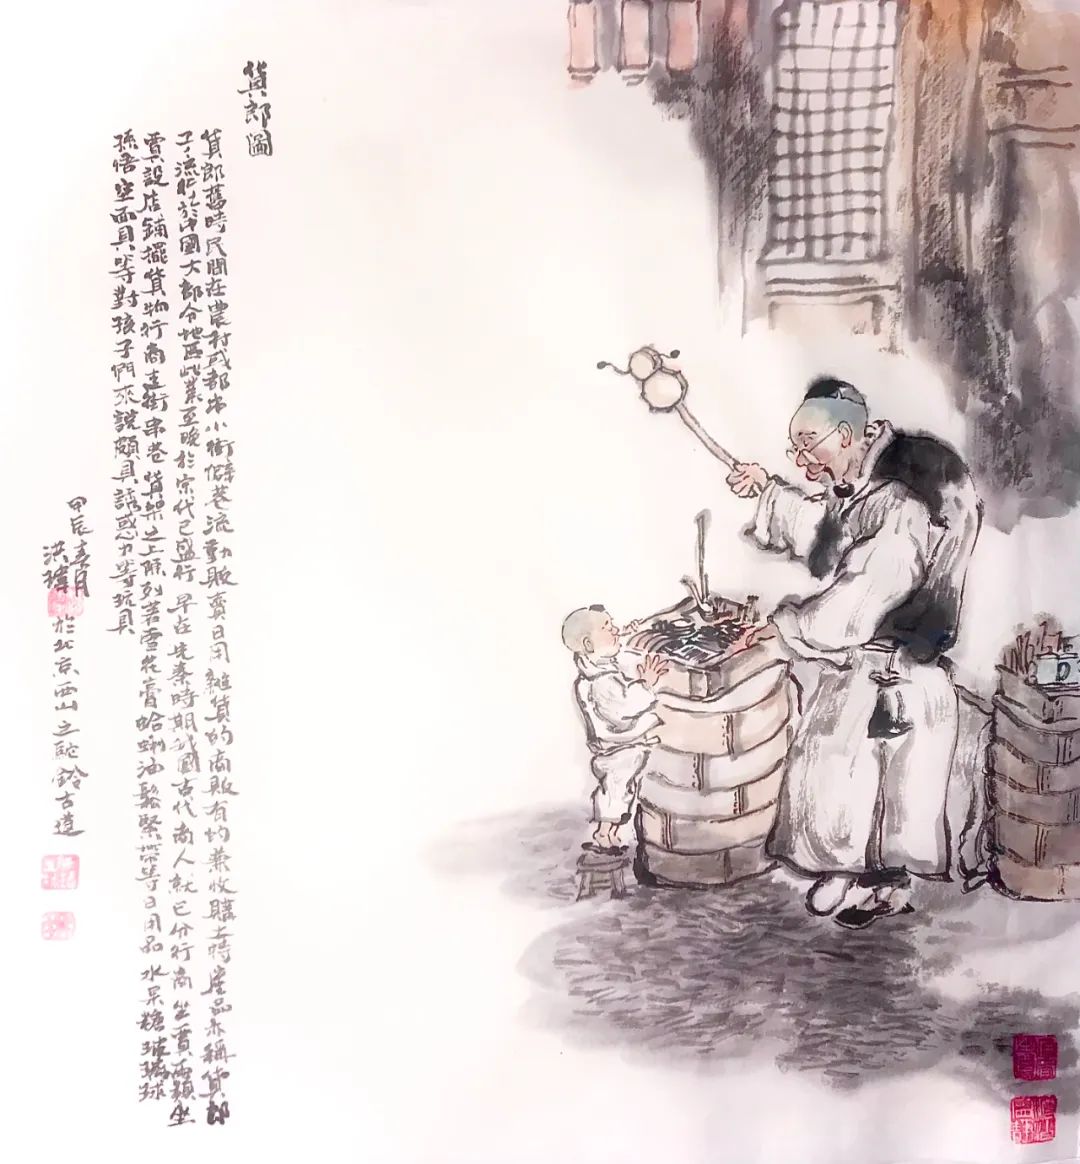 貨郎圖
貨郎舊時民間在農村或都市小街僻巷流動販賣日用雜貨的商販有的兼收購土時產品亦稱貨郎
子流動於中國大部分地區此業至晚於宗代已盛行早在先秦時期我國古代商人就已分行商坐賈兩類坐
賈設店鋪擺貨物行商走街串巷貨架之上陳列著雪花膏蛤蜊油鬆緊帶等日用品水果糖琉璃球
孫悟空面具等對孩子們來說頗具誘惑力等玩具
甲辰春月
洪 於北京西山之駝鈴古道